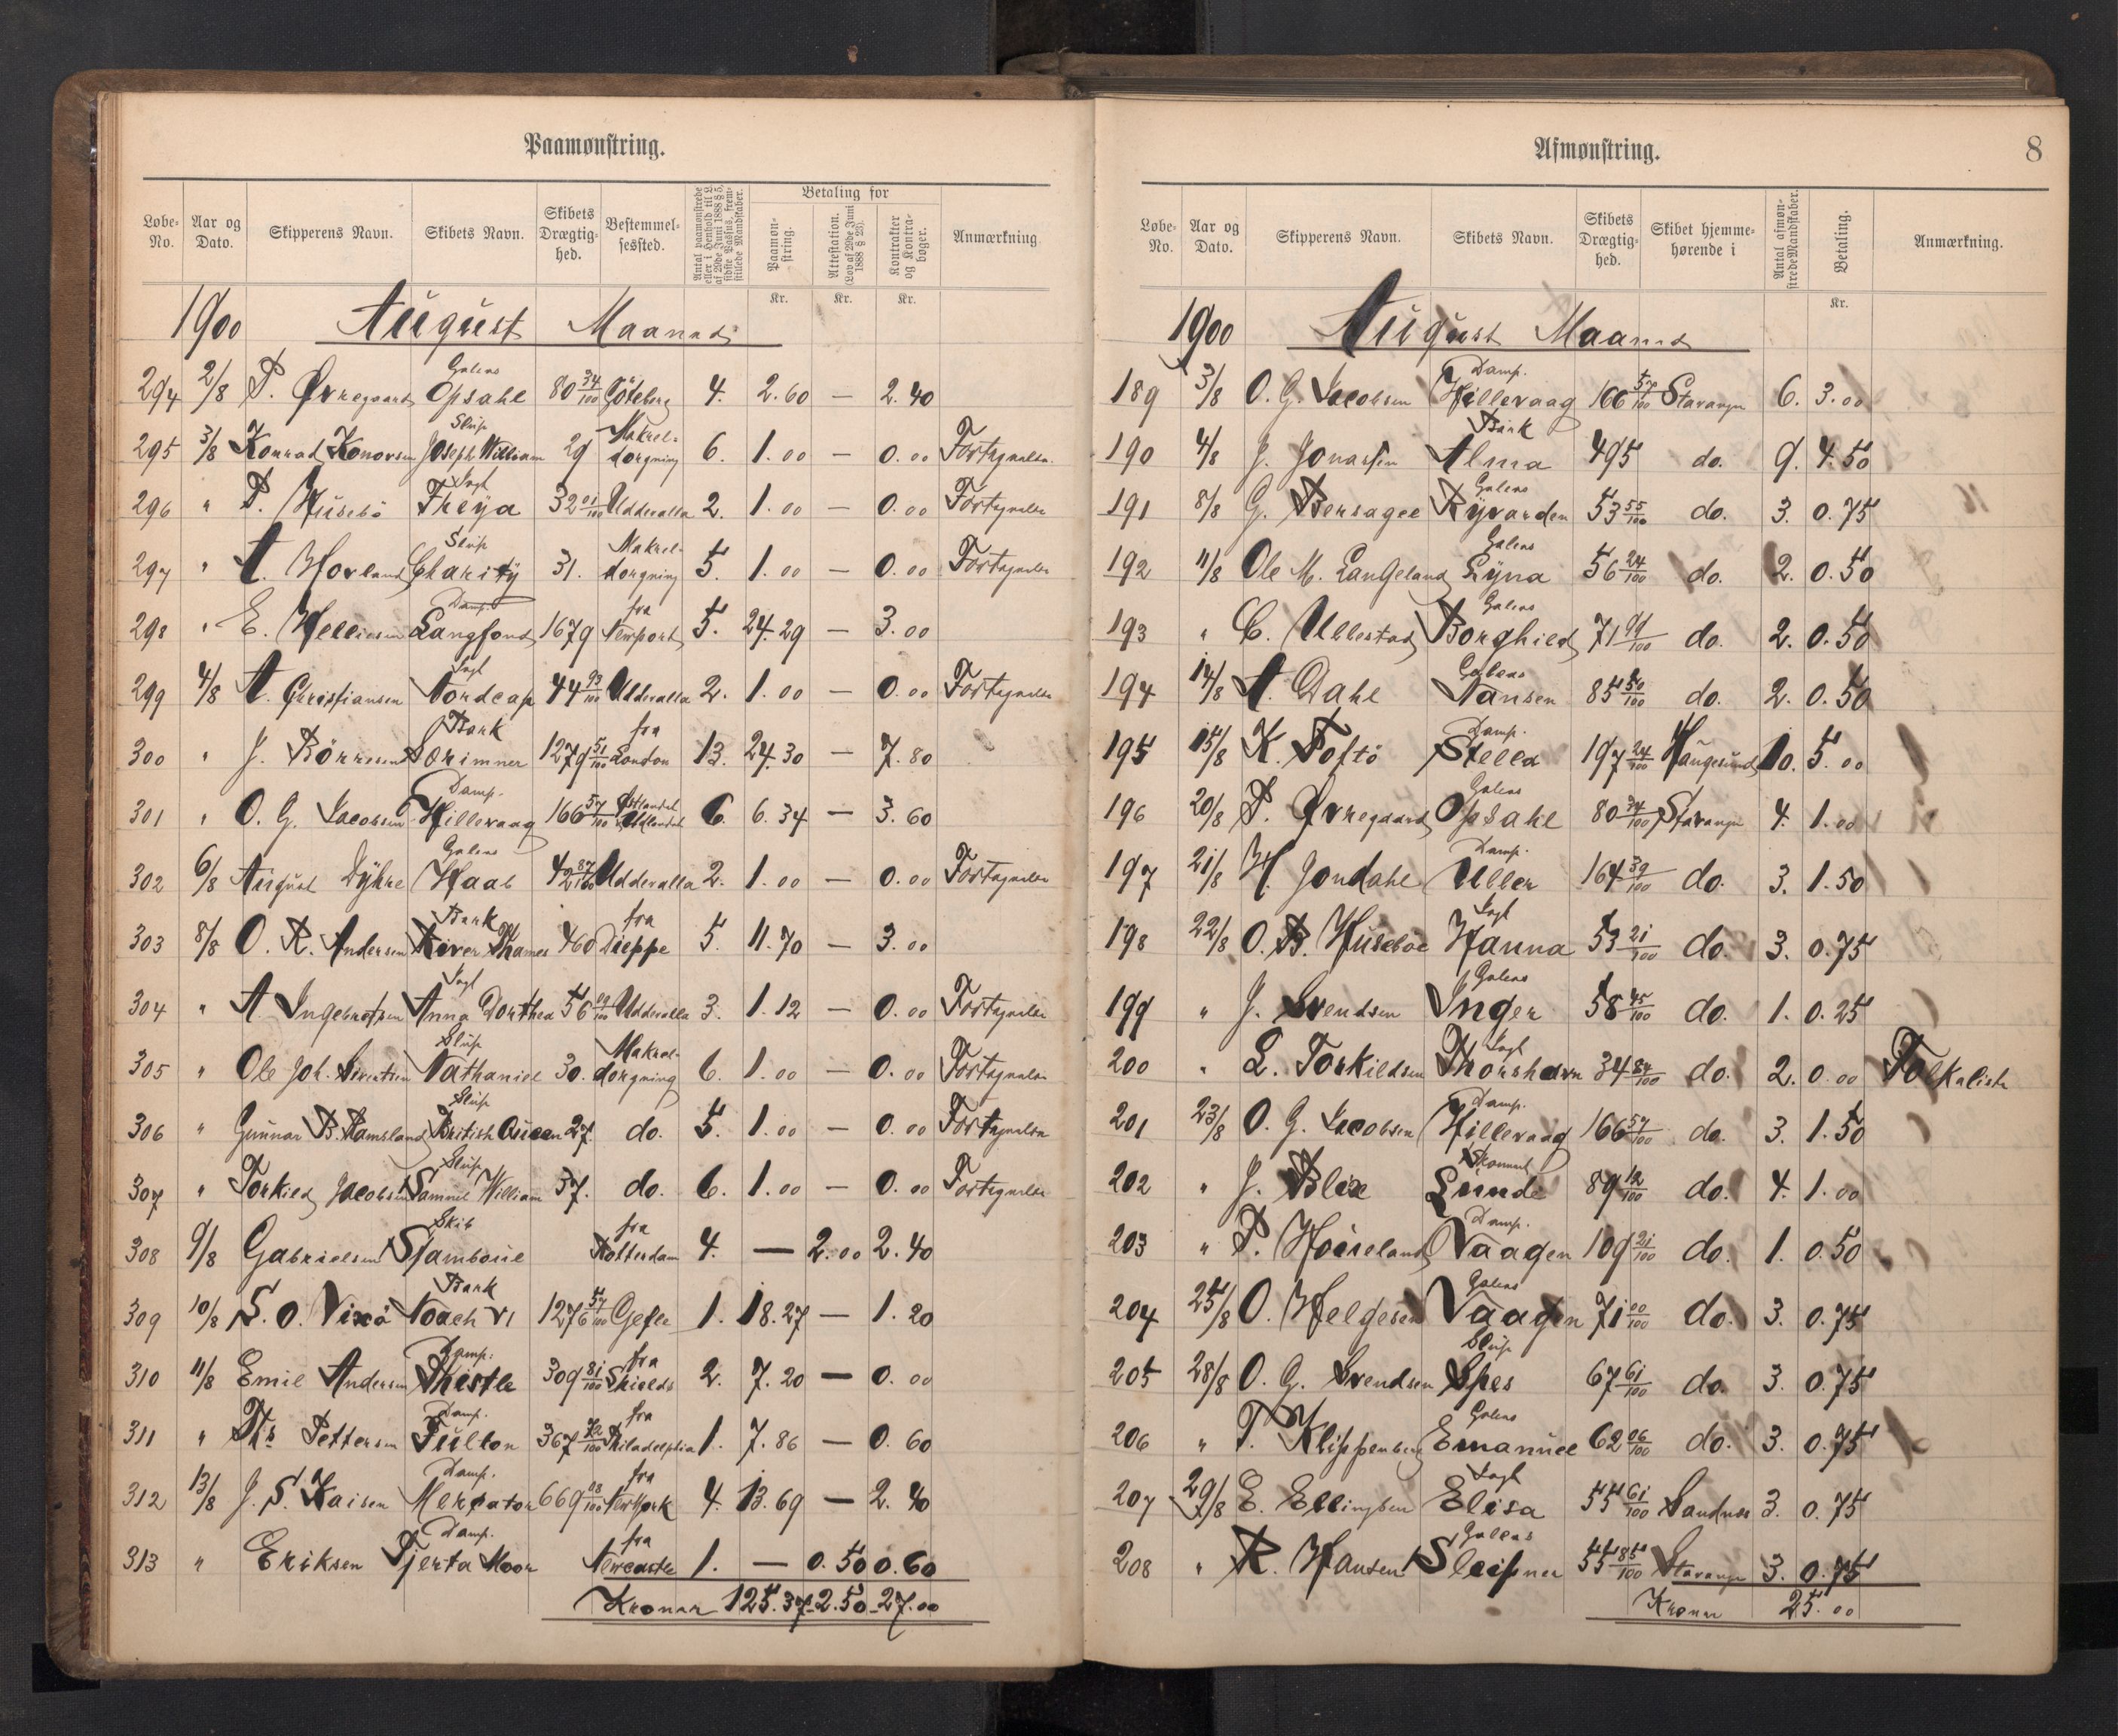 Paamønstring.
Løbe-No. Aar og Dato. Skipperens Navn. Skibets Navn. Skibets Drægtighed. Bestemmelsessted. Antal paamønstrede eller i Henhold til L. af 29de Juni 1888 § 5, sidste Passus, fremstillede Mandskaber. Betaling for Paamønstring. Attestation. (Lov af 29de Juni 1888 § 23). Kontrakter og Kontrabøger. Anmærkning
Kr. Kr. Kr.
1900 August Maaned
294 2/8 P. Øvregaard Galeas Opsahl 80 34/100 Göteborg 4. 2.60 — 2.40
295 3/8 Konrad Konorsen Slup Joseph William 29 Makreldorgning 6. 1.00 — 0.00 Fortegnelse
296 " P. Husebö Jagt Freya 32 01/100 Uddevalla 2. 1.00 — 0.00 Fortegnelse
297 " A. Hovland Slup Charity 31. Makreldorgning 5. 1.00 — 0.00 Fortegnelse
298 " E. Helliesen Damp. Langfond 1679 fra Newport 5. 24.29 — 3.00
299 4/8 A. Christiansen Jagt Nordcap 44 93/100 Uddevalla 2. 1.00 — 0.00 Fortegnelse
300 " J. Börresen Bark Sörimner 1279 51/100 fra London 13. 24.30 — 7.80
301 " O. G. Jacobsen Damp. Hillevaag 166 57/100 Østlandet Vestlandet 6. 6.34 — 3.60
302 6/8 August Dyhre Galeas Haab 42 87/100 Uddevalla 2. 1.00 — 0.00 Fortegnelse
303 8/8 O. R. Andersen Bark River Thames 460 fra Dieppe 5. 11.70 — 3.00
304 " A. Ingebretsen Jagt Anna Dorthea 56 09/100 Uddevalla 3. 1.12 — 0.00 Fortegnelse
305 " Ole Joh. Sivertsen Slup Nathaniel 30. Makreldorgning 6. 1.00 — 0.00 Fortegnelse
306 " Gunnar B. Ramsland Slup British Queen 27. do. 5. 1.00 — 0.00 Fortegnelse
307 " Torkild Jacobsen Slup Samuel William 37. do. 6. 1.00 — 0.00 Fortegnelse
308 9/8 Gabrielsen Skib Stamboul fra Rotterdam 4. — 2.00 2.40
309 10/8 S. O. Vixö Bark Noach VI 1276 57/100 Gefle 1. 18.27 — 1.20
310 11/8 Emil Andersen Damp. Thistle 309 81/100 fra Shields 2. 7.20 — 0.00
311 " Ths Pettersen Damp. Fulton 367 72/100 fra Philadelphia 1. 7.86 — 0.60
312 13/8 J. S. Kaisen Damp. Mercator 669 08/100 fra New York 4. 13.69 — 2.40
313 " Eriksen Damp. Tjerta Moor fra Newcastle 1. — 0.50 0.60
Kroner 125.37 - 2.50 - 27.00
Afmønstring. 8
Løbe-No. Aar og Dato. Skipperens Navn. Skibets Navn. Skibets Drægtighed. Skibet hjemmehørende i Antal afmønstrede Mandskaber. Betaling. Anmærkning.
Kr.
1900 August Maaned
189 3/8 O. G. Jacobsen Damp. Hillevaag 166 57/100 Stavanger 6. 3.00
190 4/8 J. Jonassen Bark Alma 495 do. 9. 4.50
191 8/8 G. Bersagel Galeas Ryvarden 53 55/100 do. 3. 0.75
192 11/8 Ole M. Langeland Galeas Lyna 56 24/100 do. 2. 0.50
193 " C. Ullestad Galeas Borghild 71 91/100 do. 2. 0.50
194 14/8 A. Dahl Galeas Nansen 85 50/100 do. 2. 0.50
195 15/8 K. Toftö Damp. Stella 197 24/100 Haugesund 10. 5.00
196 20/8 P. Øvregaard Galeas Opsahl 80 34/100 Stavanger 4. 1.00
197 21/8 H. Jondahl Damp. Uller 164 39/100 do. 3. 1.50
198 22/8 O. B. Huseboe Jagt Hanna 53 21/100 do. 3. 0.75
199 " J. Svendsen Galeas Inger 58 45/100 do. 1. 0.25
200 " L. Torkildsen Jagt Thorshavn 34 84/100 do. 2. 0.00 Folkeliste
201 23/8 O. G. Jacobsen Damp. Hillevaag 166 57/100 do. 3. 1.50
202 " J. Blix Skonnert Lunde 89 12/100 do. 4. 1.00
203 " P. Höiseland Damp. Vaagen 109 21/100 do. 1. 0.50
204 25/8 O. Helgesen Galeas Vaagen 71 00/100 do. 3. 0.75
205 28/8 O. G. Svendsen Slup Spes 67 61/100 do. 3. 0.75
206 " T. Klippenberg Galeas Emanuel 62 06/100 do. 3. 0.75
207 29/8 E. Ellingsen Jagt Elisa 55 61/100 Sandnes 3. 0.75
208 " R. Hansen Galeas Sleipner 55 85/100 Stavanger 3. 0.75
Kroner 25.00